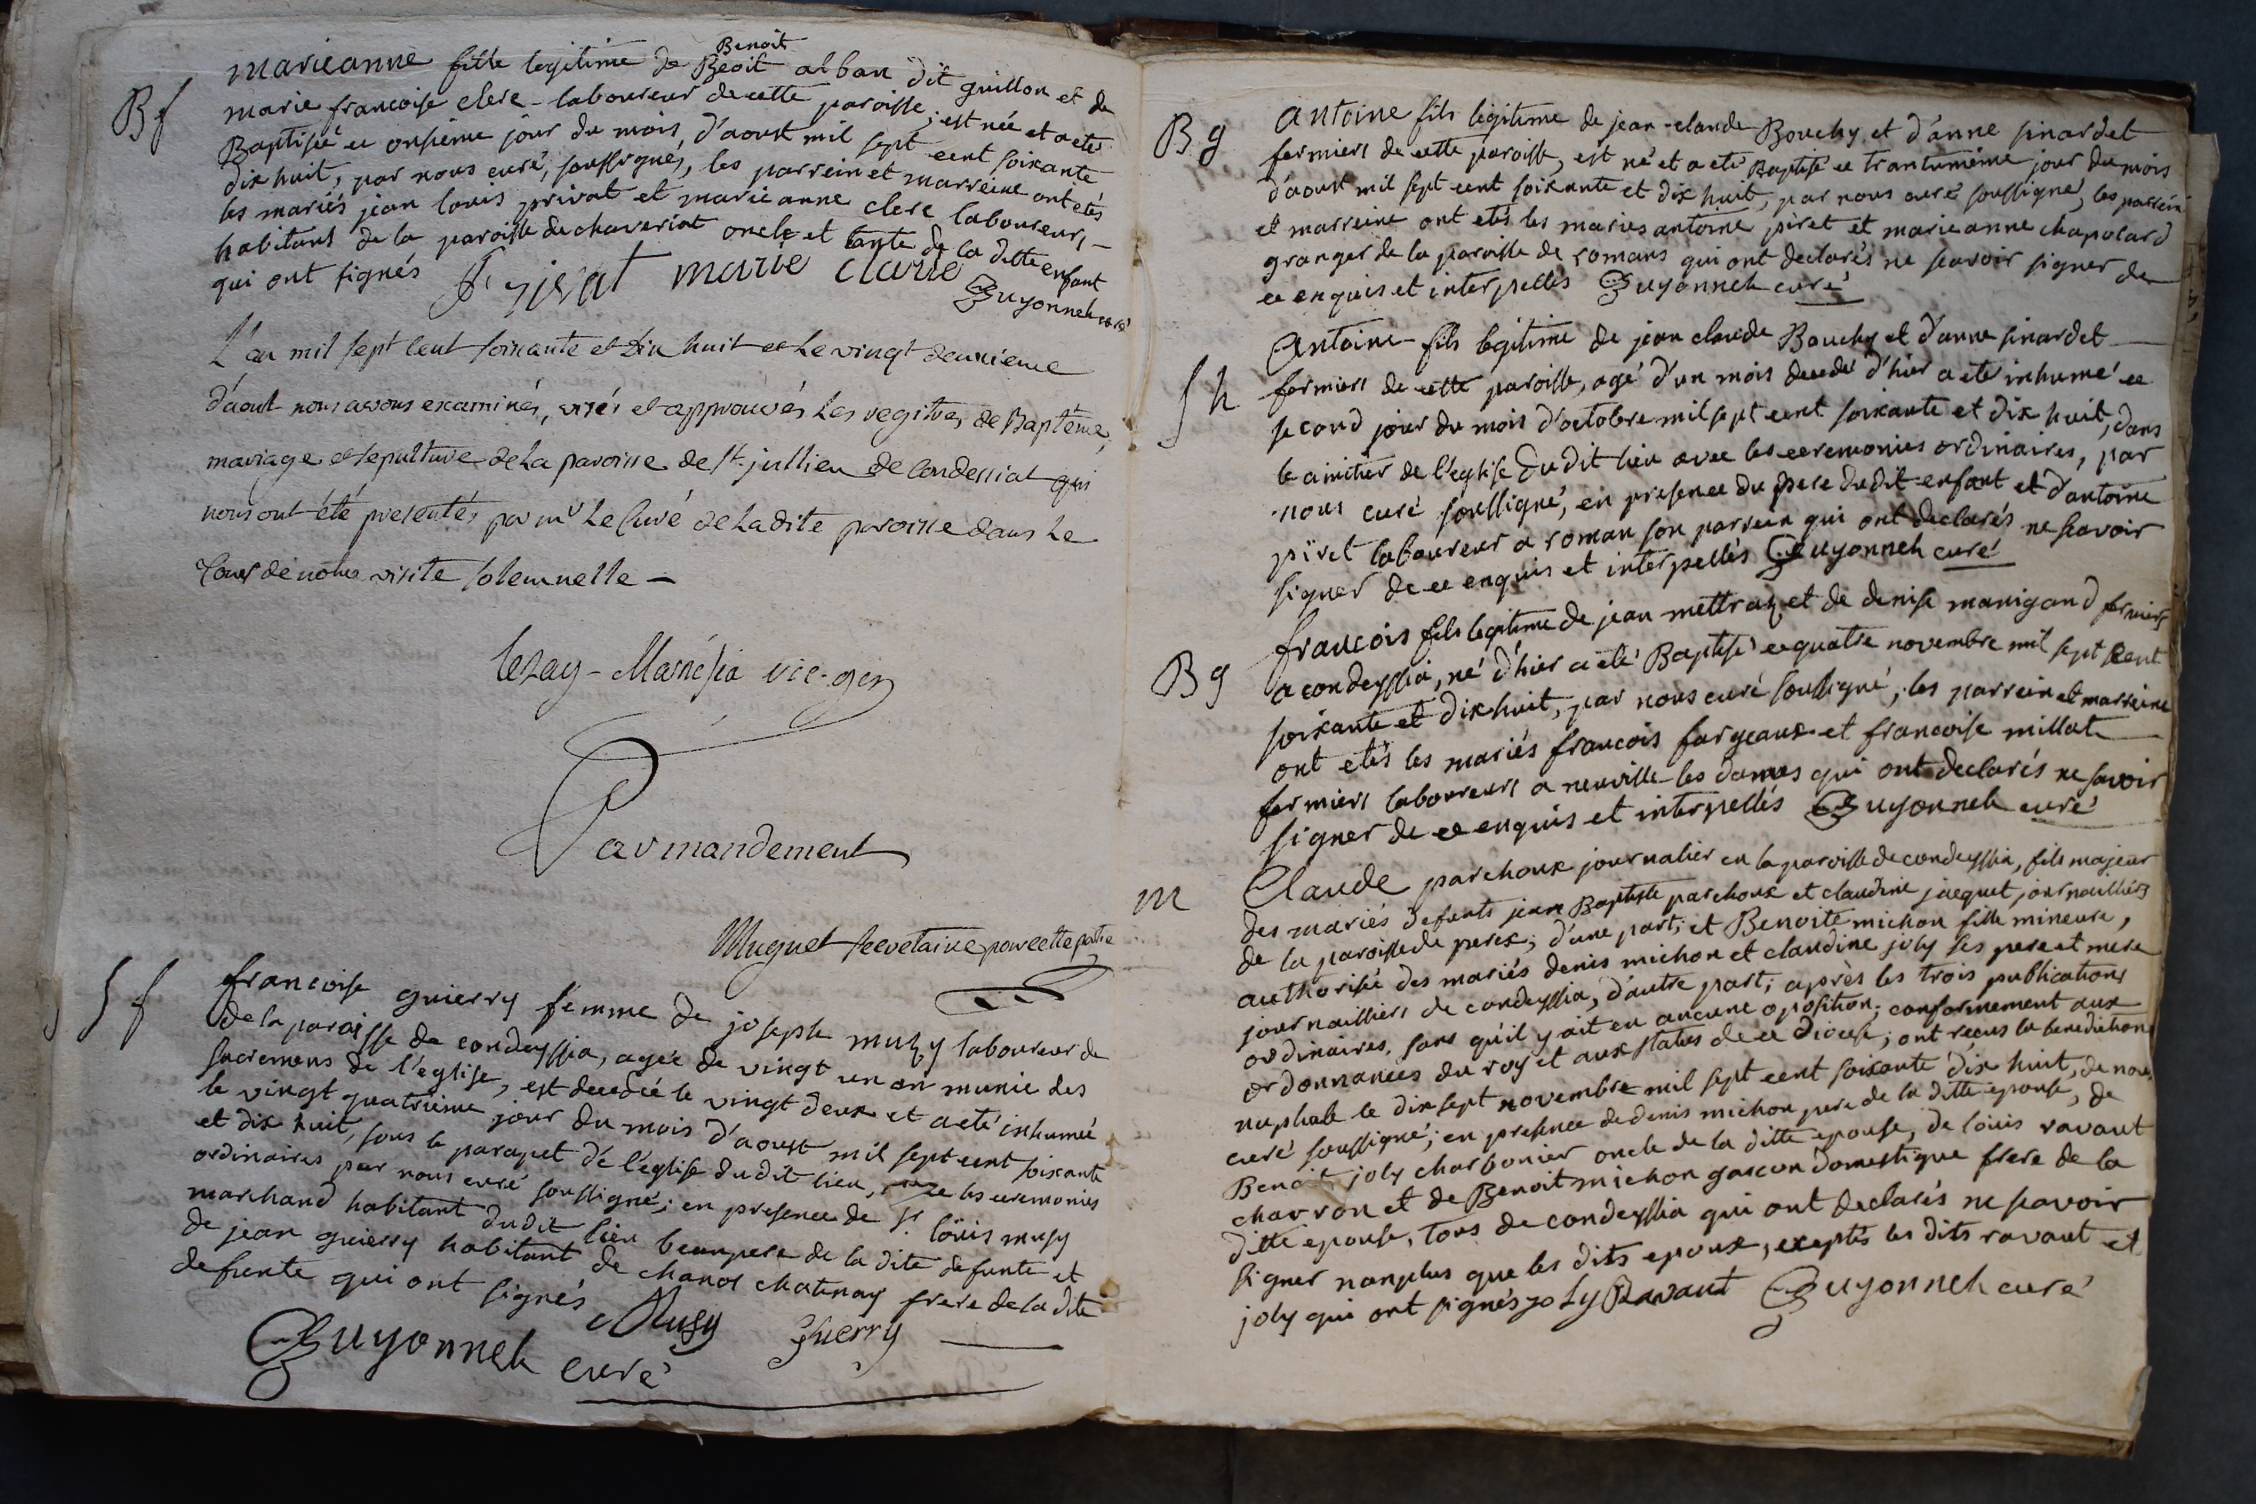 Benoit
marieanne fille legitime de Beoit alban dit guillon et de
B f
marie francoise clere - laboureur de cette paroisse ; est née et a eté
Baptisée ce onsième jour du mois d'aoust mil sept cent soixante
dix huit, par nous curé, soussignés, les parrein et marreine ont etés
les mariés jean louis privat et marie anne clere laboureurs, -
habitans de la paroisse de chaveriat oncle et tante de la ditte enfant
qui ont signés marie clarre Guyonneh curé
L'an mil sept cent soixante et dix huit et le vingt deuxieme
d'août nous avons examinés, visés et approuvés les registres de Baptême,
mariage et sepulture de la paroisse de st. jullien de Condessiat qui
nous ont été presentés par mr le Curé de la dite paroisse dans le
Cours de notre visite solemnelle -
lezay - Marnésia vic. gen
Par mandement
Muguet secretaire pour cette partie
S f
francoise guierry femme de joseph muzy laboureur de
de la paroisse de condeyssia, agée de vingt un an munie des
sacremens de l'eglise, est decedée le vingt deux et a eté inhumée
le vingt quatrieme jour du mois d'aoust mil sept cent soixante
et dix huit, sous le parapet de l'eglise du dit lieu, avec les ceremonies
ordinaires par nous curé soussigné ; en presence de sr. loüis musy
marchand habitant du dit lieu beaupere de la dite defunte et
de jean guierry habitant de chanos chatenay frere de la dite
defunte qui ont signés Musy Guerry
Guyonneh curé
B g
antoine fils legitime de jean - claude Bouchy et d'anne sinardet
fermiers de cette paroisse, est né et a eté Baptisé ce trantunième jour du mois
d'aoust mil sept cent soixante et dix huit, par nous curé soussigné, les parrein
et marreine ont etés les mariés antoine piret et marieanne chapolard
granger de la paroisse de romans qui ont declarés ne scavoir signer de
ce enquis et interpellés Guyonneh curé
Antoine fils legitime de jean claude Bouchy et d'anne sinardet
S h
fermiers de cette paroisse, agé d'un mois decedé d'hier a eté inhumé ce
second jour du mois d'octobre mil sept cent soixante et dix huit, dans
le cimitier de l'eglise du dit lieu avec les ceremonies ordinaires, par
nous curé soussigné, en presence du pere du dit enfant et d'antoine
piret laboureur a roman son parrein qui ont declarés ne scavoir
signer de ce enquis et interpellés Guyonneh curé
B g
francois fils legitime de jean mettraz et de denise manigand fermiers
a condeyssia, né d'hier a eté Baptisé ce quatre novembre mil sept cent
soixante et dix huit, par nous curé soussigné, les parrein et marreine
ont etés les mariés francois fargeaux et francoise millat
fermiers laboureurs a neuville - les dames qui ont declarés ne savoir
signer de ce enquis et interpellés Guyonneh curé
m
Claude parchoux journalier en la paroisse de condeyssia, fils majeur
des mariés defunts jean Baptiste parchoux et claudine jacquet journailliers
de la paroisse de perex ; d'une part ; et Benoite michon fille mineure,
authorisée des mariés denis michon et claudine joly ses pere et mere
journailliers de condeyssia, d'autre part ; après les trois publications
ordinaires, sans qu'il y ait eu aucune oposition ; conformement aux
ordonnances du roy et aux statuts de ce diocese ; ont recus la benediction
nuptiale le dix sept novembre mil sept cent soixante dix huit, de nous
curé soussigné ; en presence de denis michon pere de la ditte epouse, de
Benoit joly charbonier oncle de la ditte epouse, de loüis ravaut
charron et de Benoit michon garcon domestique frere de la
ditte epouse, tous de condeyssia qui ont declarés ne scavoir
signer nonplus que les dits epoux, exeptés les dits ravaut et
joly qui ont signés joly Ravaut Guyonneh curé